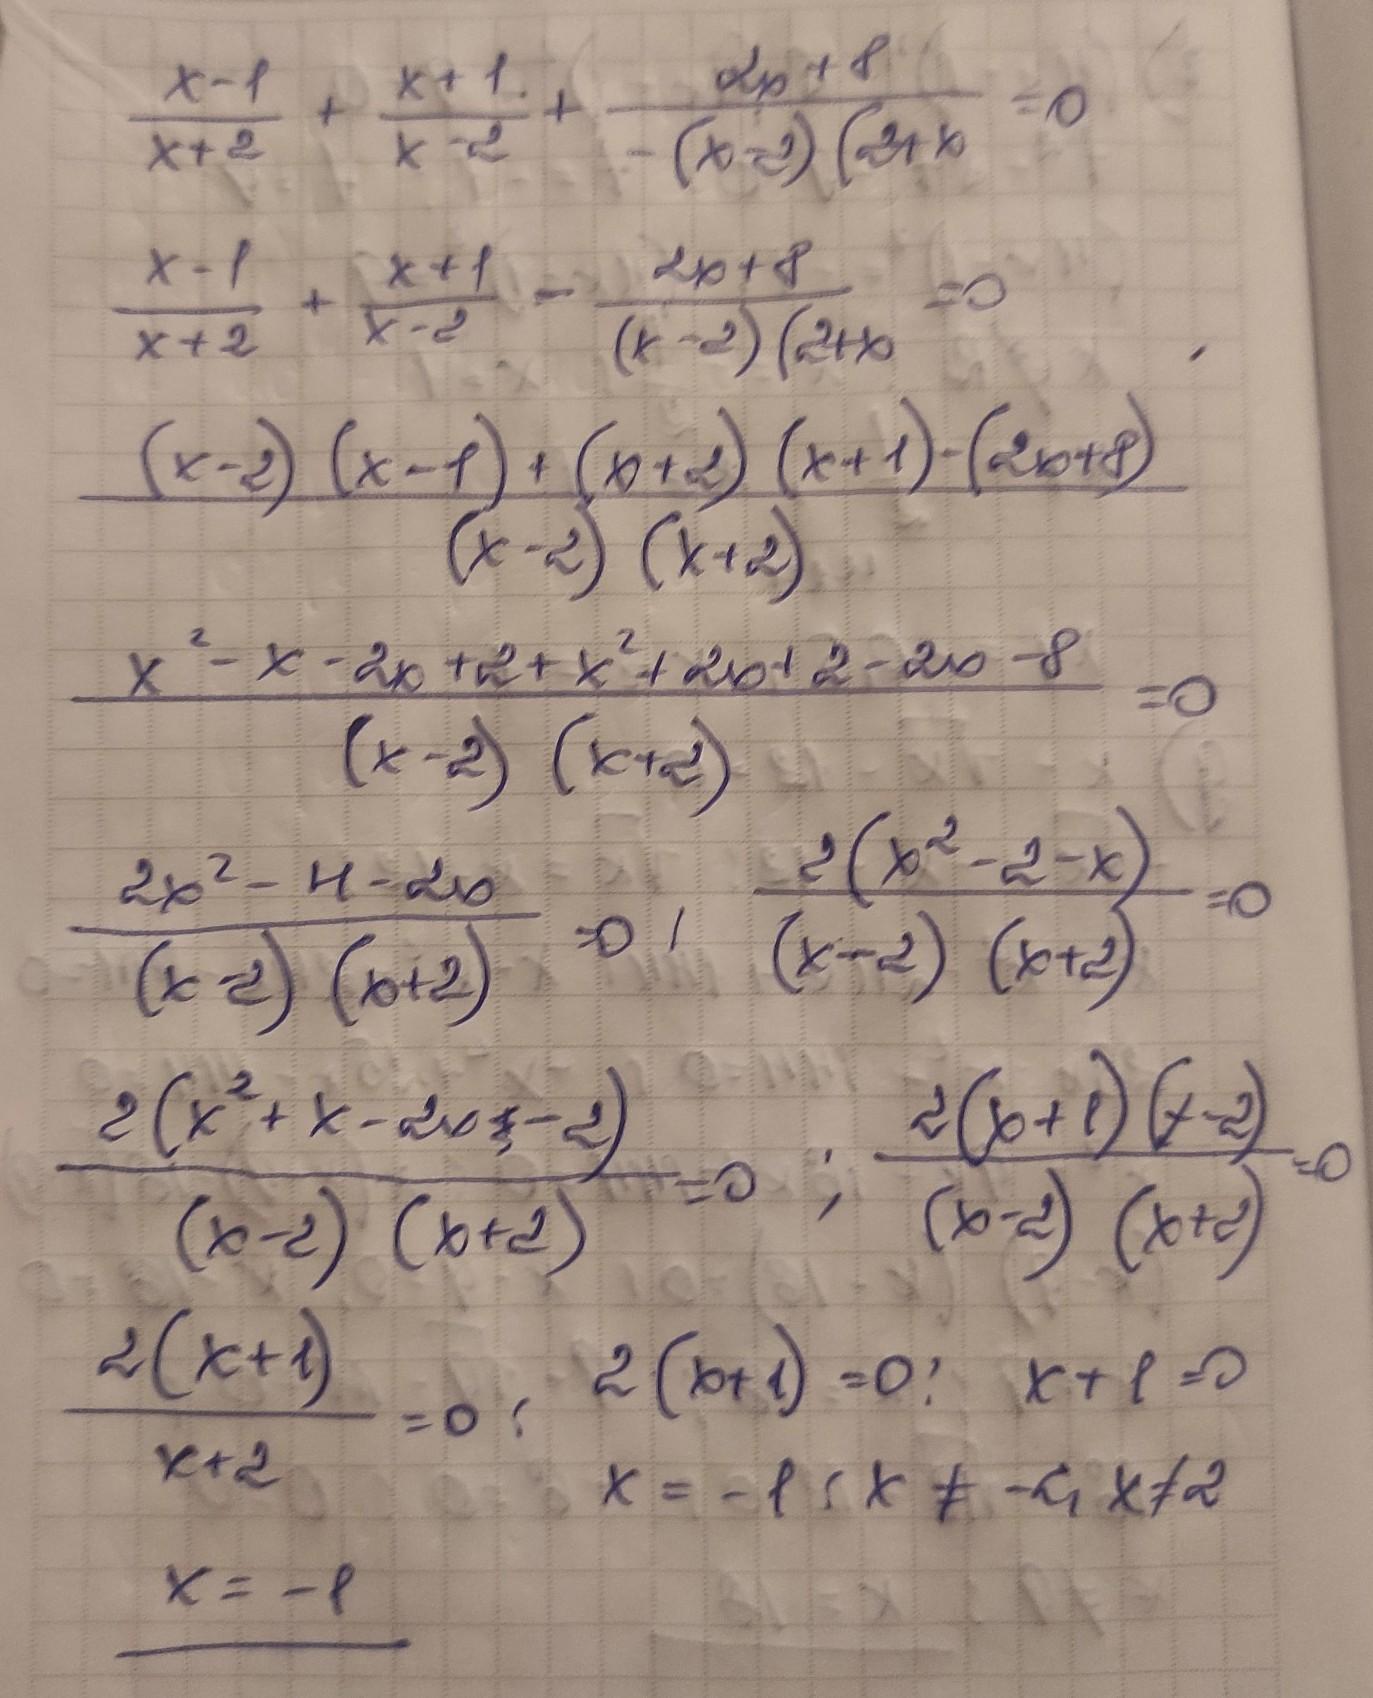 (x-1)/(x+2) + (x+1)/(x-2) + (2x+8)/(-(x-2)(2+x) =0
(x-1)/(x+2) + (x+1)/(x-2) - (2x+8)/((x-2)(2+x) =0
((x-2)(x-1)+(x+2)(x+1)-(2x+8))/((x-2)(x+2))
(x²-x-2x+2+x²+2x+2-2x-8)/((x-2)(x+2)) =0
(2x²-4-2x)/((x-2)(x+2)) =0; (2(x²-2-x))/((x-2)(x+2)) =0
(2(x²+x-2x-2))/((x-2)(x+2)) =0; (2(x+1)(x-2))/((x-2)(x+2)) =0
(2(x+1))/(x+2) =0; 2(x+1)=0; x+1=0
x=-1; x≠-2, x≠2
x=-1